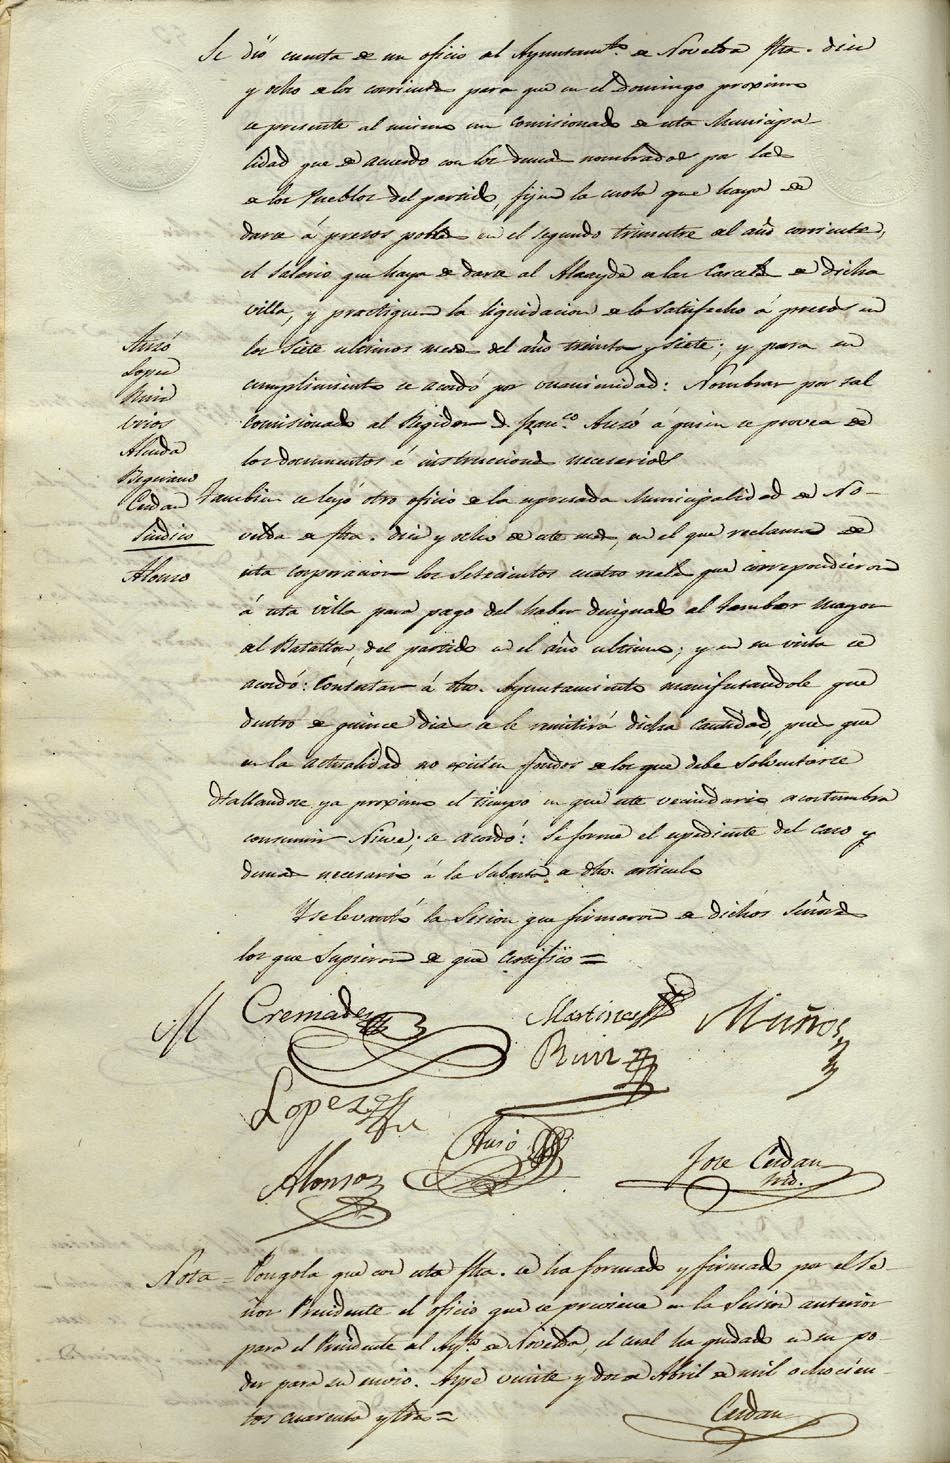 Se dió cuenta de un oficio del Ayuntamto. de Novelda fha. diez
y ocho de los corrientes para que en el Domingo proximo
se presente al mismo un Comisionado de esta Municipa-
lidad que de acuerdo con los demas nombrados por las
de los Pueblos del partido, fijen la cuota que haya de
darse á presos pobres en el segundo trimestre del año corriente,
el Salario que haya de darse al Alcayde de las Carceles de dicha
villa, y practiquen la liquidacion de lo satisfecho á presos en
los siete ultimos meses del año treinta y siete; y para su
cumplimiento se acordó por unanimidad: Nombrar por tal
Comisionado al Regidor D. Franco. Auzó á quien se provea de
los documentos é instrucciones necesarios
Auzó
Lopez
Ruiz
Alonso
Cerdan
Sindico
Tambien se leyó otro oficio de la expresada Municipalidad de No-
velda de fha. diez y ocho de este mes, en el que reclama de
esta corporacion los Setecientos cuatro reales que correspondieron
á esta villa para pago del haber designado al tambor mayor
del Batallon del partido en el año ultimo; y en su vista se
acordó: Contestar á dho. Ayuntamiento manifestandole que
dentro de quince dias se le remitirá dicha cantidad, pues que
en la actualidad no existen fondos de los que debe Solventarse
Hallandose ya proximo el tiempo en que este vecindario acostumbra
consumir Nieve; se acordó: Se forme el espediente del caso y
demas necesario á la Subasta de dho. articulo
Y se levantó la Sesion que firmaron de dichos Señores
los que Supieron de que certifico =
Cremades Martinez Muñoz
Ruiz
Lopez
Alonso Auzó Jose Cerdan
Srio.
Nota = Pongola que con esta fha. se ha formado y firmado por el Se-
ñor Presidente el oficio que se previene en la Sesion anterior
para el Presidente del Aymto. de Novelda, el cual ha quedado en su po-
der para su envio. Aspe veinte y dos de Abril de mil ochocien-
tos cuarenta y tres =
Cerdan